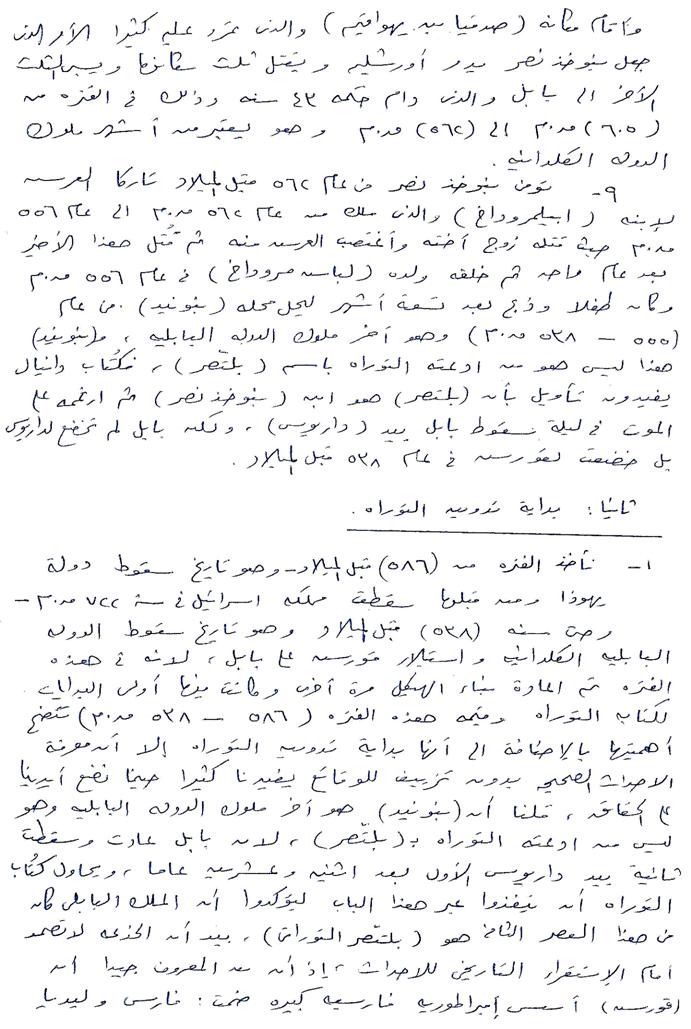 وأقام مكانه (صدقيا بن يهواقيم) والذى تمرد عليه كثيرا الأمر الذى
جعل نبوخذ نصر يدمر أورشليم ويقتل ثلث سكانها ويسبى الثلث
الأخر الى بابل والذى دام حكمه ٤٣ سنه وذلك فى الفتره من
(٦٠٥) ق.م الى (٥٦٢) ق.م وهو يعتبر من أشهر ملوك
الدوله الكلدانيه.
٩- توفى نبوخذ نصر فى عام ٥٦٢ قبل الميلاد تاركا العرش
لإبنه (ابيلمروداخ) والذى ملك من عام ٥٦٢ ق.م الى عام ٥٥٦
ق.م حيث قتله زوج أخته وأغتصب العرش منه ثم قُتل هذا الأخير
بعد عام واحد ثم خلفه ولده (لباس مروداخ) فى عام ٥٥٦ ق.م
وكان طفلا وذبح بعد تسعة أشهر ليحل محله (نبونيد) من عام
(٥٥٥ - ٥٣٨ ق.م) وهو أخر ملوك الدوله البابليه، و(نبونيد)
هذا ليس هو من ادعته التوراه باسم (بلتّصر)، فكتُاب دانيال
يفيدون تأويل بأن (بلتصر) هو ابن (نبوخذ نصر) ثم ارغمه على
الموت فى ليلة سقوط بابل بيد (داريوس)، ولكن بابل لم تخضع لداريوس
بل خضعت لقورس فى عام ٥٣٨ قبل الميلاد.
ثانيا: بداية تدوين التوراه.
١- نأخذ الفتره من (٥٨٦) قبل الميلاد - وهو تاريخ سقوط دولة
يهوذا ومن قبلها سقطت مملكه اسرائيل فى سنة ٧٢٢ ق.م -
وحتى سنه (٥٣٨) قبل الميلاد وهو تاريخ سقوط الدوله
البابليه الكلدانيه واستيلاء قورس على بابل، لانه فى هذه
الفتره تم اعادة بناء الهيكل مرة أخرى وكانت فيها أولى البدايات
لكتاب التوراه وقيمه هذه الفتره (٥٨٦ - ٥٣٨ ق.م) تتضح
أهميتها بالإضافة الى أنها بداية تدوين التوراه إلا أن معرفة
الاحداث الصحيح بدون تزييف للوقائع يفيدنا كثيرا حينما نضع أيدينا
على الحقائق، قلنا أن (نبونيد) هو أخر ملوك الدوله البابليه وهو
ليس من ادعته التوراه بـ(بلتّصر)، لان بابل عادت وسقطت
ثانية بيد داريوس الأول بعد اثنين وعشرين عاما، ويحاول كتُاب
التوراه أن ينفذوا عبر هذا الباب ليؤكدوا أن الملك البابلى كان
فى هذا العصر الثانى هو (بلتّصر التوراتى)، بيد أن الخدعه لا تصمد
أمام الإستقراء التاريخى للاحداث، إذ أن من المعروف جيدا أن
(قورس) أسس إمبراطوريه فارسيه كبيره ضمت: فارس وليديا